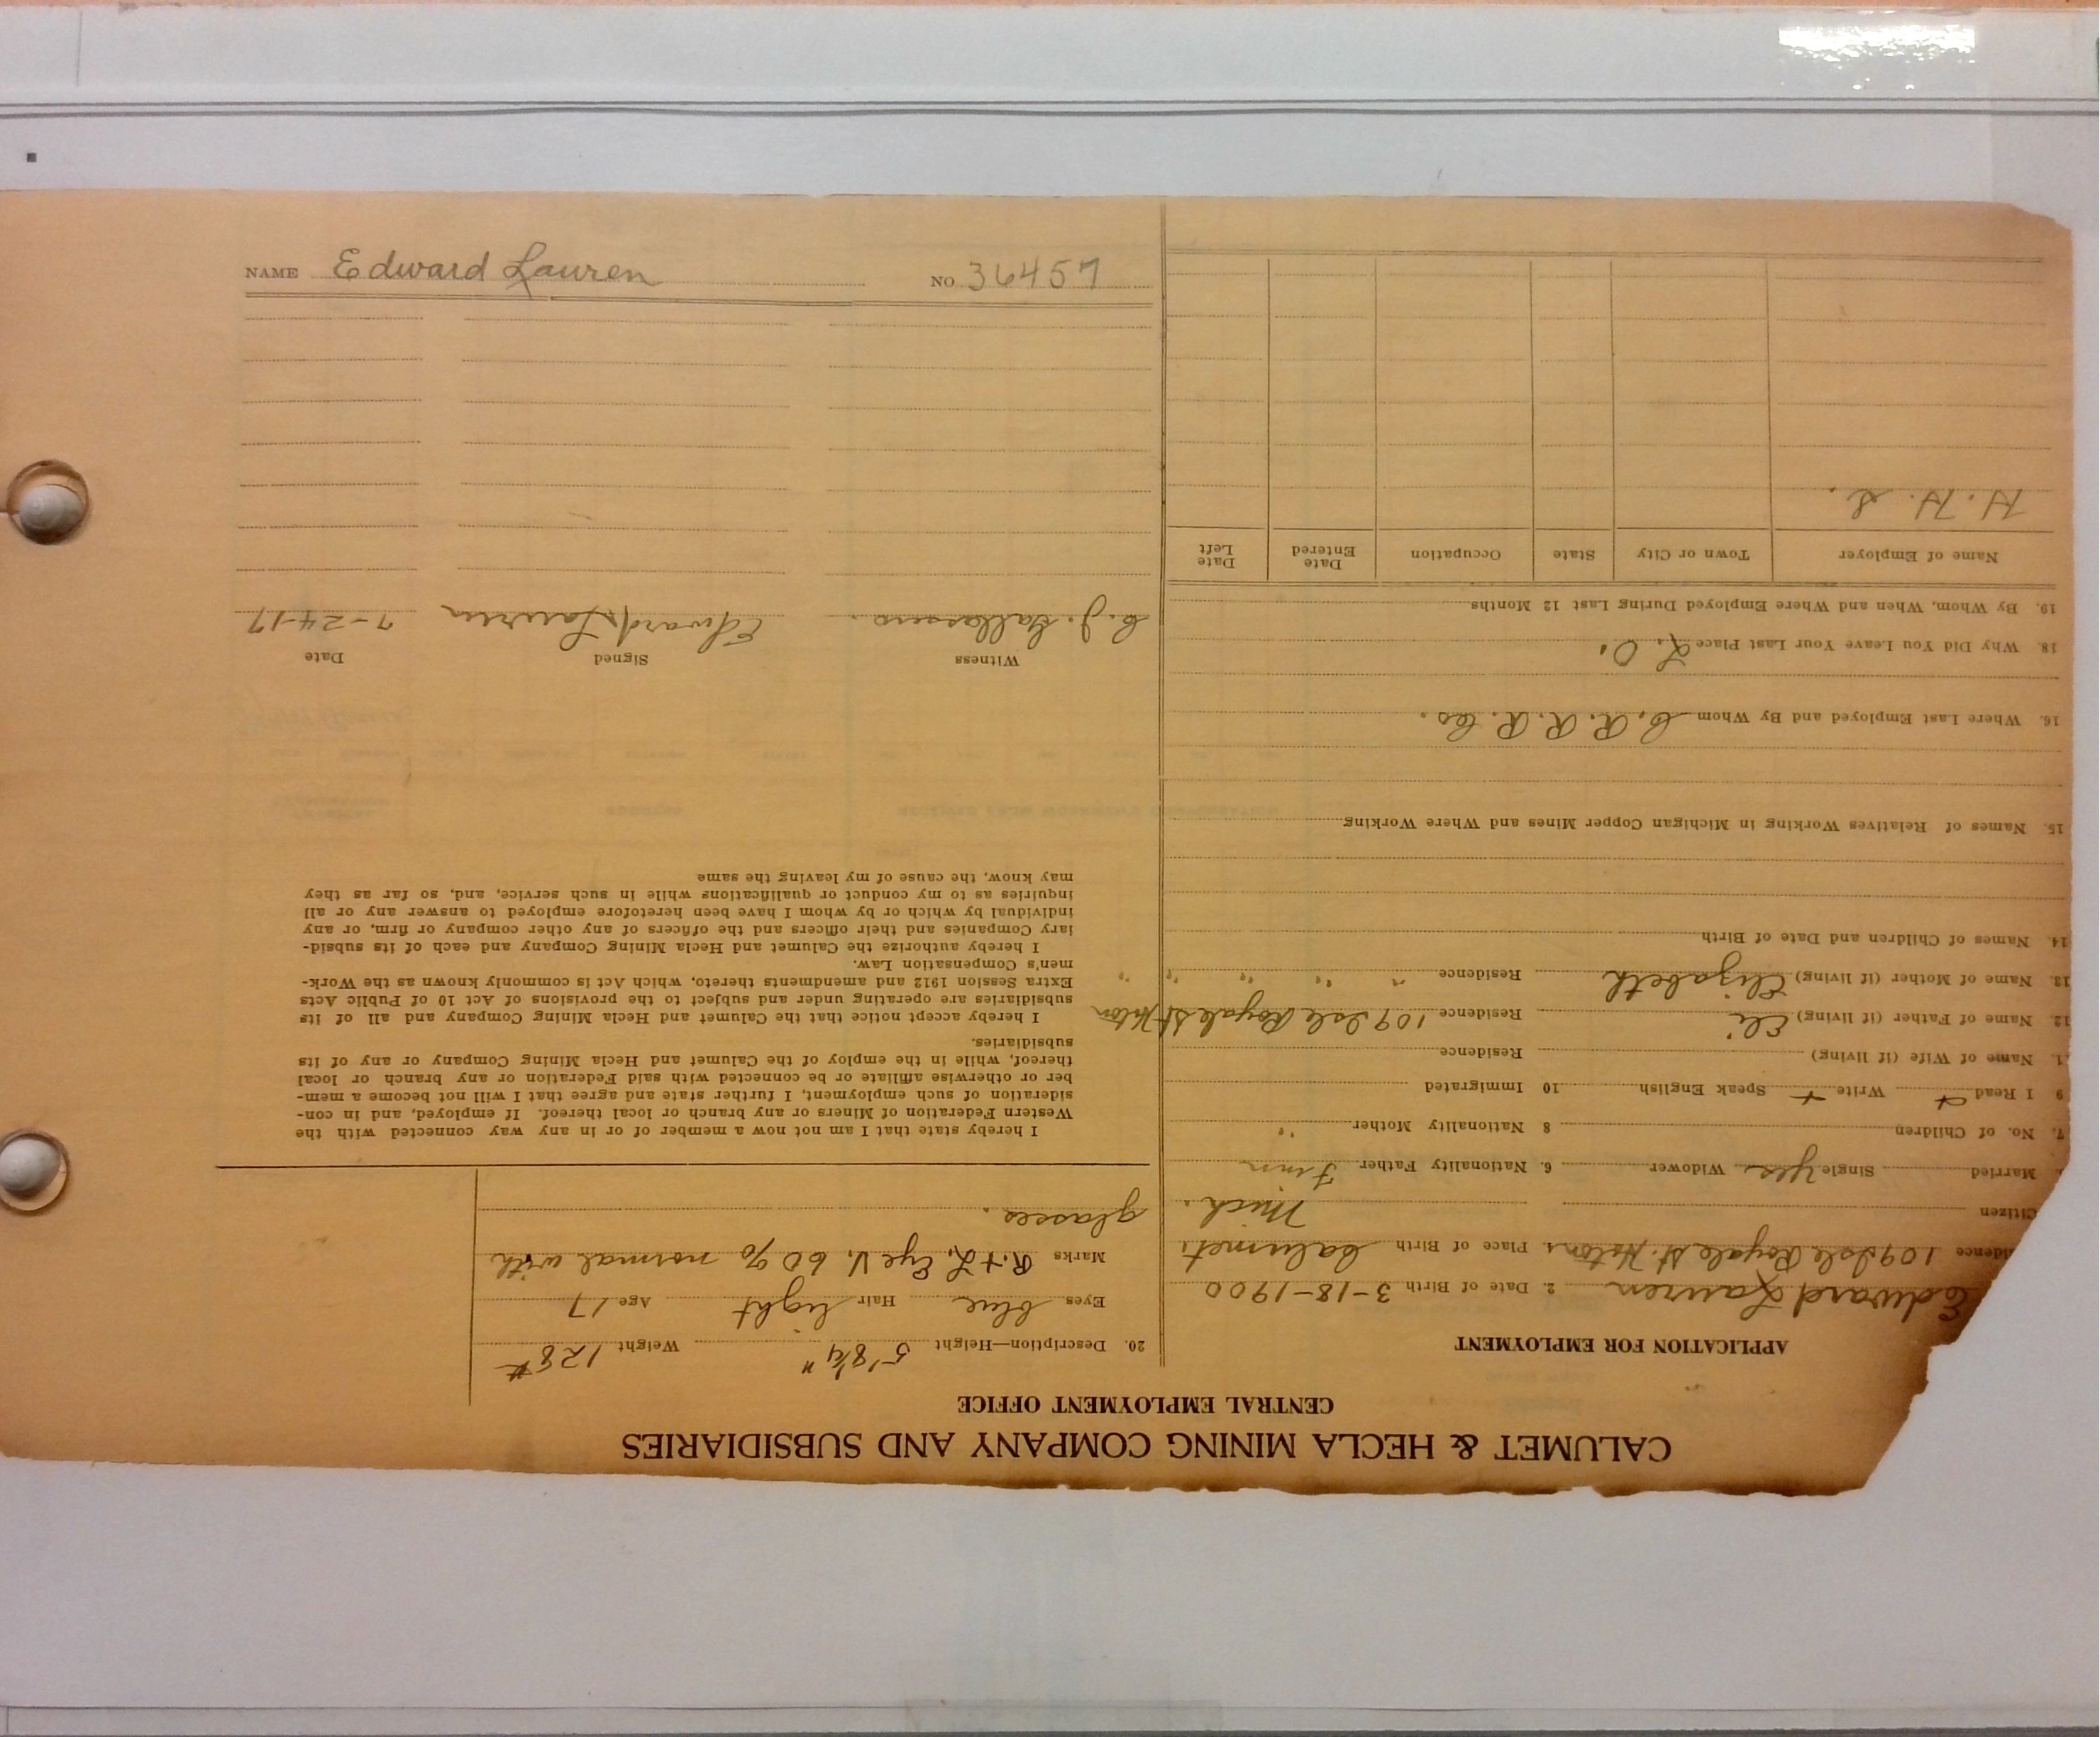 CALUMET & HECLA MINING COMPANY AND SUBSIDIARIES
CENTRAL EMPLOYMENT OFFICE
APPLICATION FOR EMPLOYMENT
Edward Lauren 2. Date of Birth 3-18-1900
idence 109 Isle Royale St. Hoton 4. Place of Birth Calumet,
Citizen Mich.
Married Single Yes Widower 6. Nationality Father Finn
7. No. of Children 8 Nationality Mother "
9 I Read + Write + Speak English 10 Immigrated
1. Name of Wife (if living) Residence
12. Name of Father (if living) Eli Residence 109 Isle Royale St Hoton
13. Name of Mother (if living) Elizabeth Residence " " " " "
14. Names of Children and Date of Birth
15. Names of Relatives Working in Michigan Copper Mines and Where Working
16. Where Last Employed and By Whom C. R. R. R. Co.
18. Why Did You Leave Your Last Place L. O.
19. By Whom, When and Where Employed During Last 12 Months
Name of Employer Town or City State Occupation Date Entered Date Left
H. H. S.
20. Description—Height 5' 8 1/4" Weight 128#
Eyes blue Hair light Age 17
Marks R. + L. Eye V. 60 % normal with
glasses.
I hereby state that I am not now a member of or in any way connected with the
Western Federation of Miners or any branch or local thereof. If employed, and in con-
sideration of such employment, I further state and agree that I will not become a mem-
ber or otherwise affiliate or be connected with said Federation or any branch or local
thereof, while in the employ of the Calumet and Hecla Mining Company or any of its
subsidiaries.
I hereby accept notice that the Calumet and Hecla Mining Company and all of its
subsidiaries are operating under and subject to the provisions of Act 10 of Public Acts
Extra Session 1912 and amendments thereto, which Act is commonly known as the Work-
men's Compensation Law.
I hereby authorize the Calumet and Hecla Mining Company and each of its subsid-
iary Companies and their officers and the officers of any other company or firm, or any
individual by which or by whom I have been heretofore employed to answer any or all
inquiries as to my conduct or qualifications while in such service, and, so far as they
may know, the cause of my leaving the same
Witness Signed Date
C. J. Edward Lauren 7-24-17
NAME Edward Lauren NO. 36457